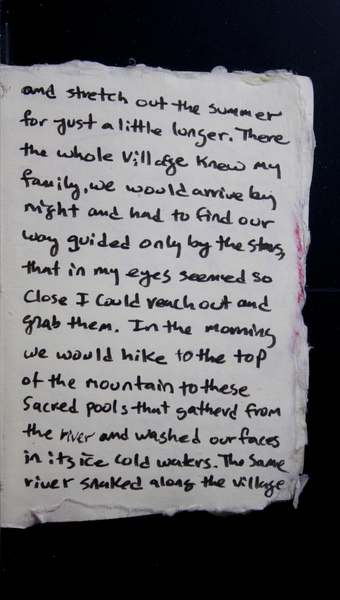 and stretch out the summer
for just a little longer. There
the whole village knew my
family, we would arrive by
night and had to find our
way guided only by the stars,
that in my eyes seemed so
close I could reach out and
grab them. In the morning
we would hike to the top
of the mountain to these
sacred pools that gatherd from
the river and washed our faces
in its ice cold waters. The same
river snaked along the village